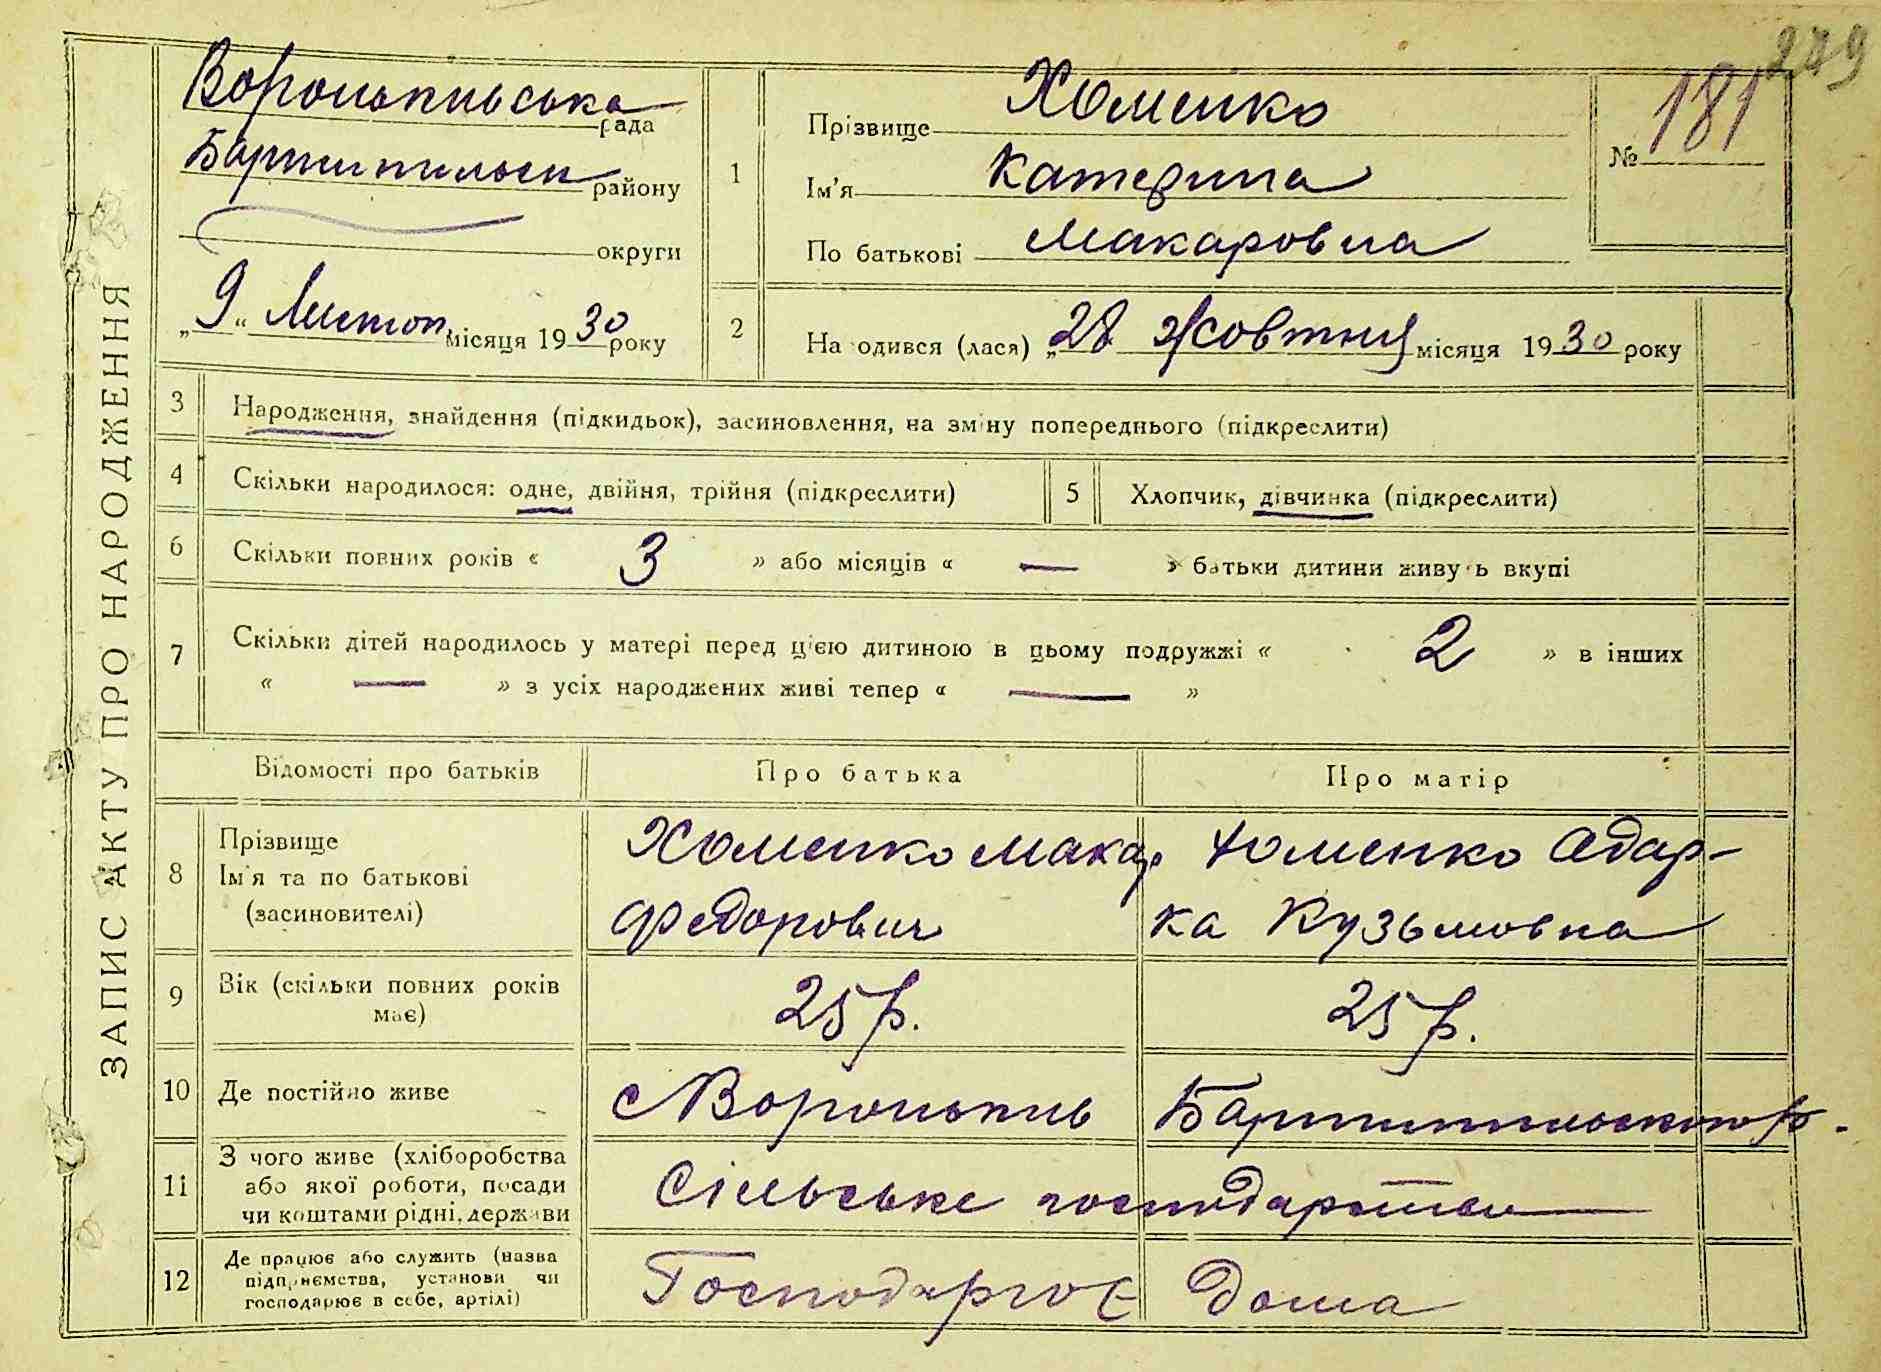 249
ЗАПИС АКТУ ПРО НАРОДЖЕННЯ
Воронькивська рада
району
округи
„9" Листоп. місяця 1930 року
1
Прізвище Хоменко
Ім'я Катерина
По батькові Макаровна
№ 181
2
Народився (лася) „28 Жовтня місяця 1930 року
3 Народження, знайдення (підкидьок), засиновлення, на зміну попереднього (підкреслити)
4 Скільки народилося: одне, двійня, трійня (підкреслити)
5 Хлопчик, дівчинка (підкреслити)
6 Скільки повних років « 3 » або місяців « — » батьки дитини живуть вкупі
7 Скільки дітей народилось у матері перед цією дитиною в цьому подружжі « 2 » в інших
« — » з усіх народжених живі тепер « — »
Відомості про батьків Про батька Про матір
8 Прізвище
Ім'я та по батькові
(засиновителі)
Хоменко Макар
Федорович
Хоменко Одар-
ка Кузьмовна
9 Вік (скільки повних років
має)
25 р. 25 р.
10 Де постійно живе
с Вороньків
11 З чого живе (хліборобства
або якої роботи, посади
чи коштами рідні, держави
Сільське господарство
12 Де працює або служить (назва
підприємства, установи чи
господарює в себе, артілі)
Господарює дома